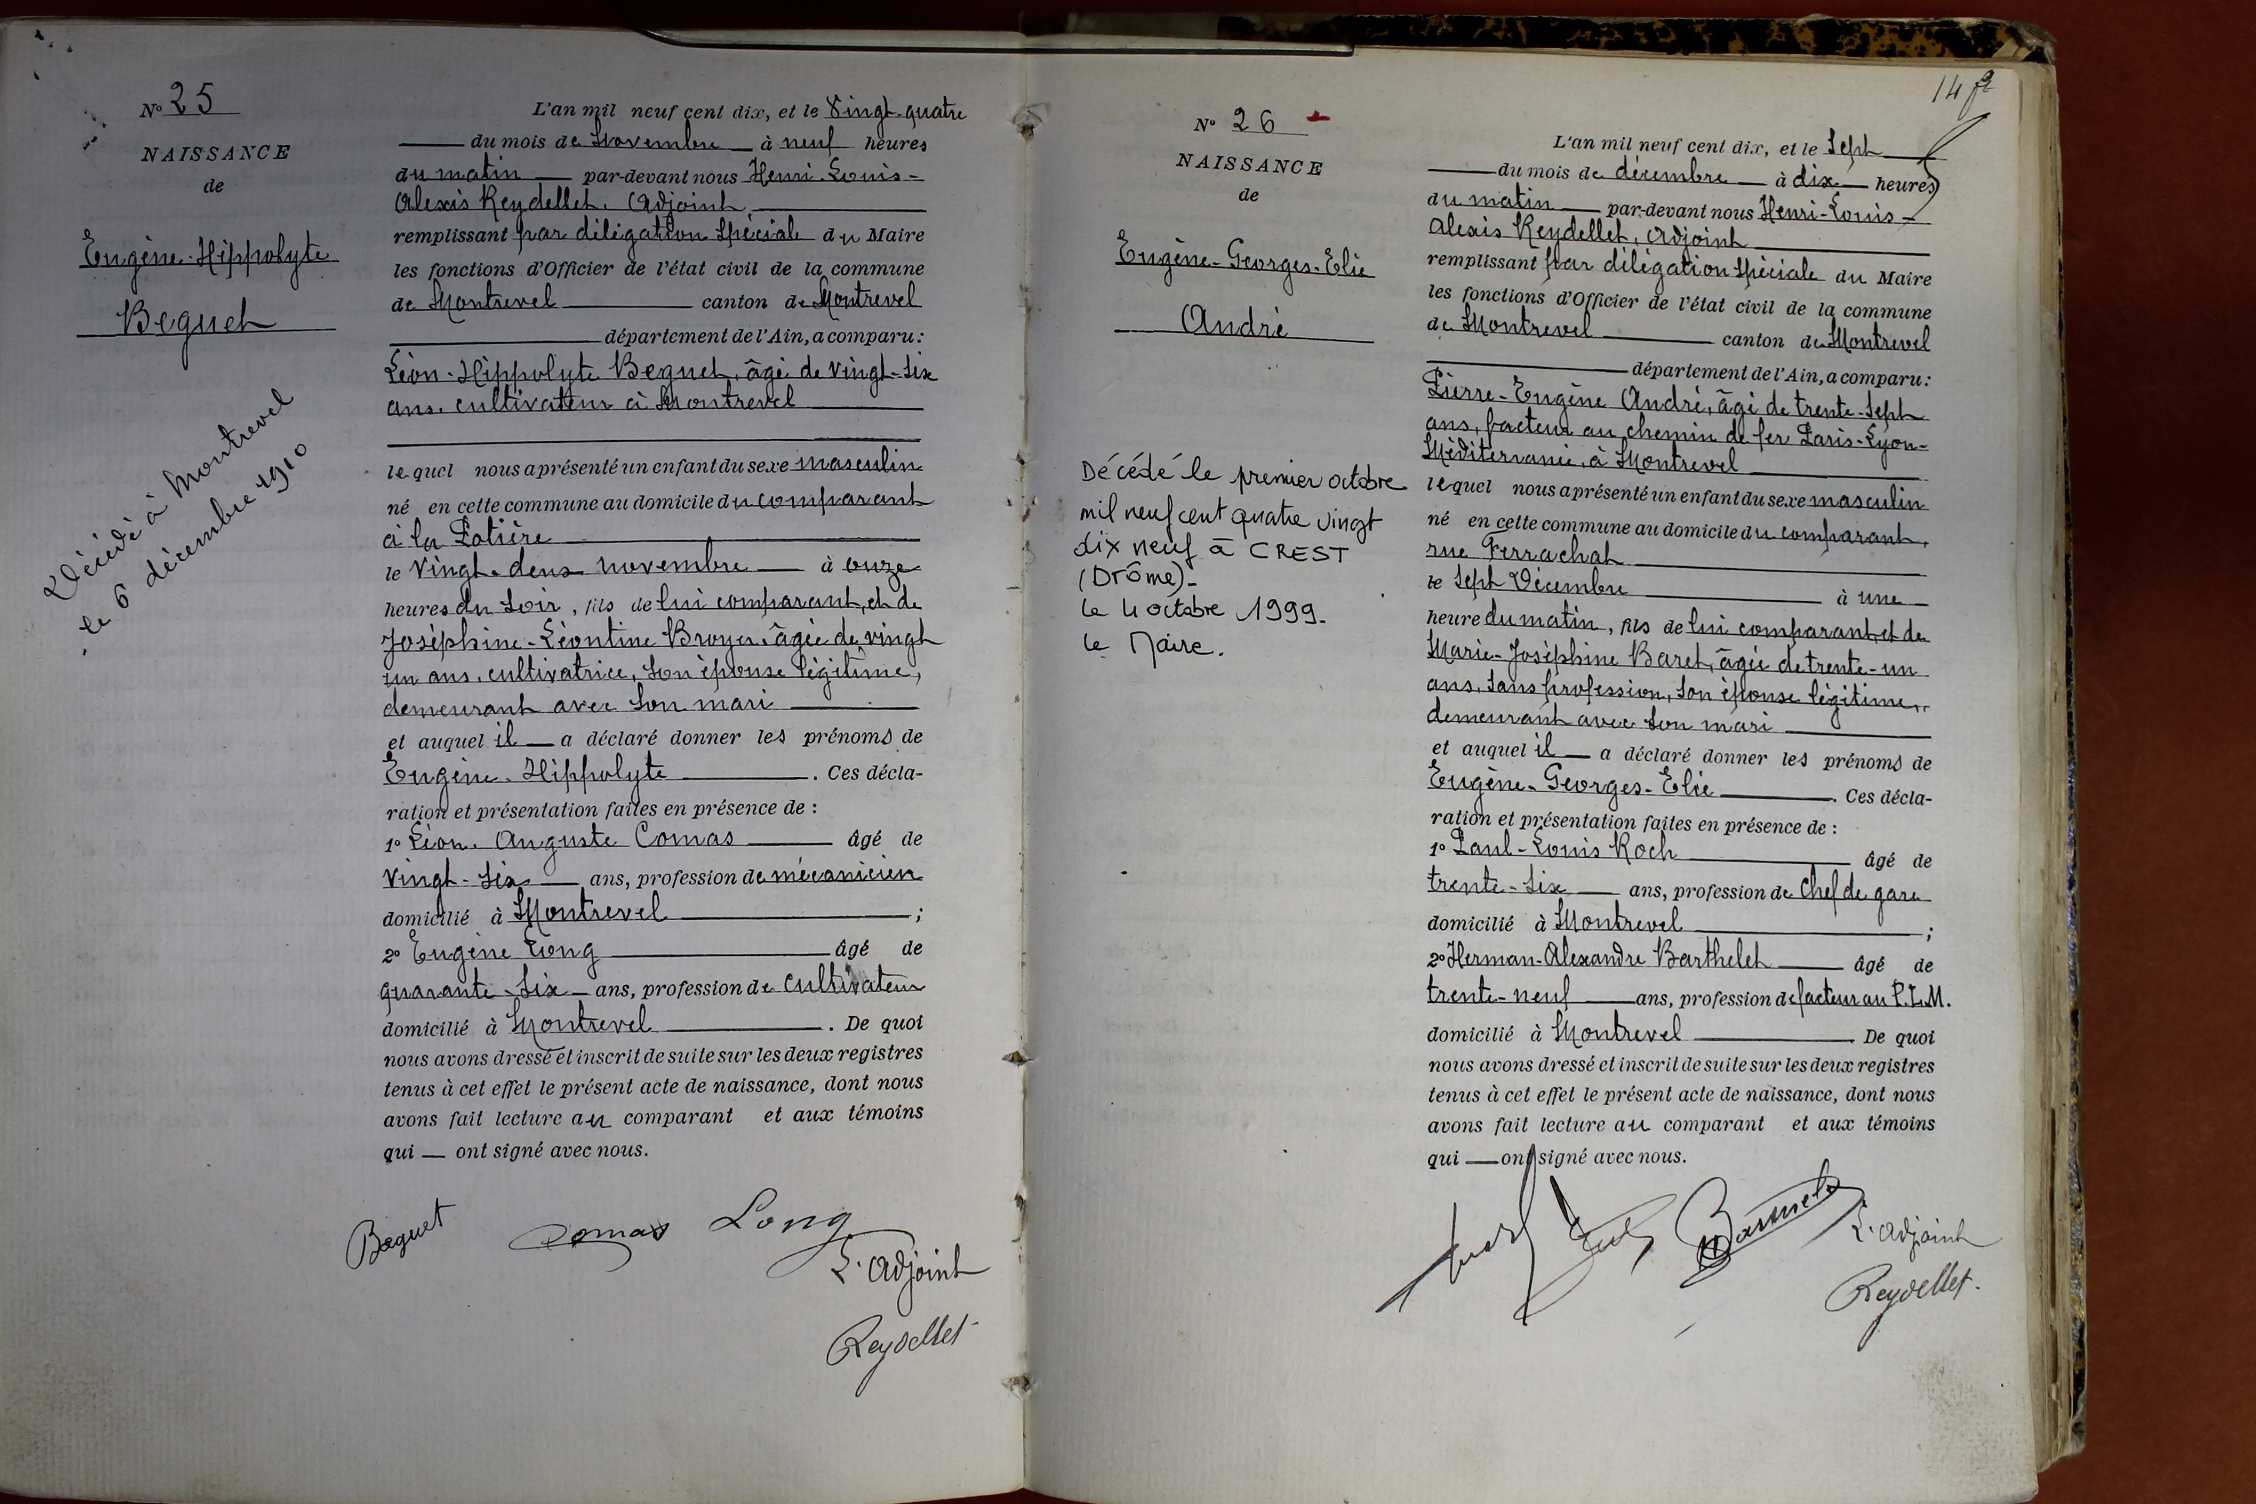 N° 25
NAISSANCE
de
Eugène-Hippolyte
Beguet
Décédé à Montrevel
le 6 décembre 1910
L'an mil neuf cent dix, et le Vingt-quatre
du mois de Novembre à neuf heures
du matin par-devant nous Henri-Louis-
Alexis Reydellet, Adjoint
remplissant par délégation spéciale du Maire
les fonctions d'Officier de l'état civil de la commune
de Montrevel canton de Montrevel
département de l'Ain, a comparu :
Léon-Hippolyte Beguet, âgé de vingt-six
ans, cultivateur à Montrevel
lequel nous a présenté un enfant du sexe masculin
né en cette commune au domicile du comparant
à la Potière
le vingt-deux novembre à onze
heures du soir, fils de lui comparant, et de
Joséphine-Léontine Broyer, âgée de vingt
un ans, cultivatrice, son épouse légitime,
demeurant avec son mari
et auquel il a déclaré donner les prénoms de
Eugène-Hippolyte. Ces décla-
ration et présentation faites en présence de :
1° Léon-Auguste Comas âgé de
vingt-six ans, profession de mécanicien
domicilié à Montrevel ;
2° Eugène Long âgé de
quarante-six ans, profession de cultivateur
domicilié à Montrevel. De quoi
nous avons dressé et inscrit de suite sur les deux registres
tenus à cet effet le présent acte de naissance, dont nous
avons fait lecture au comparant et aux témoins
qui ont signé avec nous.
Beguet Comas Long
L'adjoint
Reydellet
14
N° 26
NAISSANCE
de
Eugène-Georges-Elie
André
Décédé le premier octobre
mil neuf cent quatre vingt
dix neuf à CREST
(Drôme)-
Le 4 octobre 1999-
Le Maire.
L'an mil neuf cent dix, et le sept
du mois de décembre à dix heures
du matin par-devant nous Henri-Louis-
Alexis Reydellet, Adjoint
remplissant par délégation spéciale du Maire
les fonctions d'Officier de l'état civil de la commune
de Montrevel canton de Montrevel
département de l'Ain, a comparu :
Pierre-Eugène André, âgé de trente-sept
ans, facteur au chemin de fer Paris-Lyon-
Méditerranée, à Montrevel
lequel nous a présenté un enfant du sexe masculin
né en cette commune au domicile du comparant,
rue Ferrachat
le sept Décembre à une
heure du matin, fils de lui comparant, et de
Marie-Joséphine Baret, âgée de trente-un
ans, sans profession, son épouse légitime,
demeurant avec son mari
et auquel il a déclaré donner les prénoms de
Eugène-Georges-Elie. Ces décla-
ration et présentation faites en présence de :
1° Paul-Louis Koch âgé de
trente-six ans, profession de chef de gare
domicilié à Montrevel ;
2° Herman-Alexandre Barthelet âgé de
trente-neuf ans, profession de facteur au P.L.M.
domicilié à Montrevel. De quoi
nous avons dressé et inscrit de suite sur les deux registres
tenus à cet effet le présent acte de naissance, dont nous
avons fait lecture au comparant et aux témoins
qui ont signé avec nous.
L'adjoint
Reydellet.